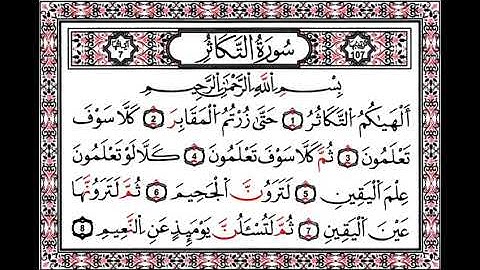 سُورَةُ التَّكَاثُرِ
107
7
بِسْمِ اللَّهِ الرَّحْمَٰنِ الرَّحِيمِ
أَلْهَىٰكُمُ التَّكَاثُرُ ١ حَتَّىٰ زُرْتُمُ الْمَقَابِرَ ٢ كَلَّا سَوْفَ
تَعْلَمُونَ ٣ ثُمَّ كَلَّا سَوْفَ تَعْلَمُونَ ٤ كَلَّا لَوْ تَعْلَمُونَ
عِلْمَ الْيَقِينِ ٥ لَتَرَوُنَّ الْجَحِيمَ ٦ ثُمَّ لَتَرَوُنَّهَا
عَيْنَ الْيَقِينِ ٧ ثُمَّ لَتُسْـَٔلُنَّ يَوْمَئِذٍ عَنِ النَّعِيمِ ٨